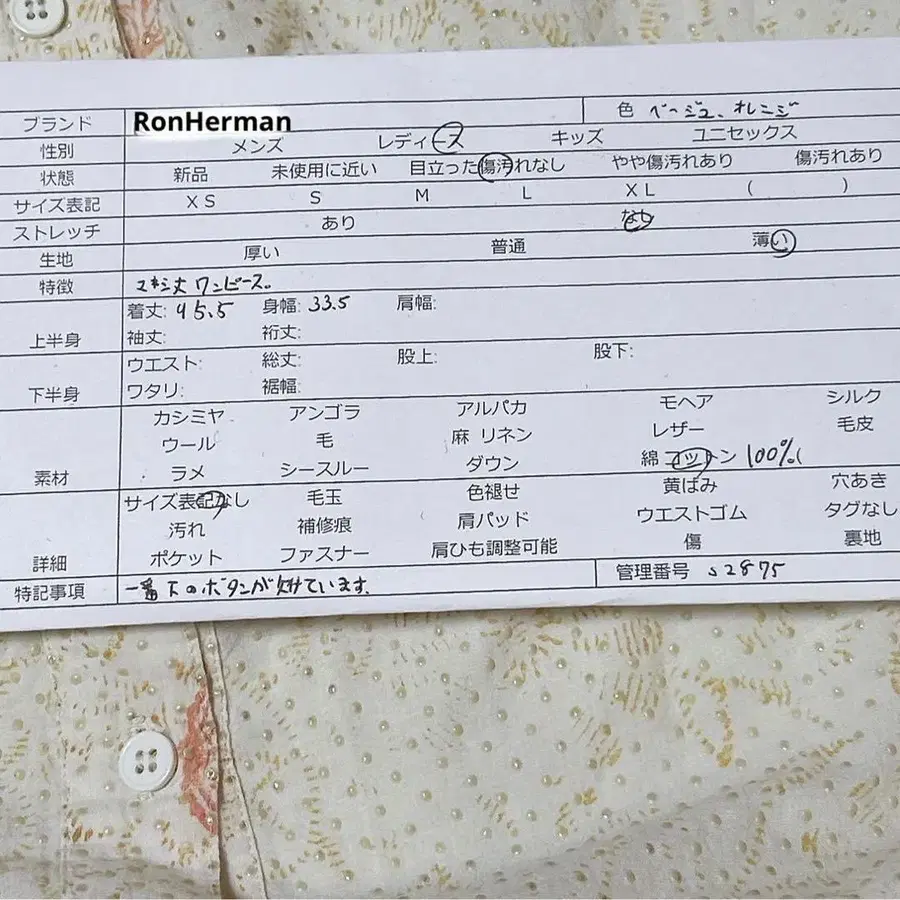 ブランド RonHerman 色 ベージュ、オレンジ
性別 メンズ レディース キッズ ユニセックス
状態 新品 未使用に近い 目立った傷汚れなし やや傷汚れあり 傷汚れあり
サイズ表記 XS S M L XL ( )
ストレッチ あり なし
生地 厚い 普通 薄い
特徴 マキシ丈ワンピース。
上半身 着丈: 95.5 身幅: 33.5 肩幅:
袖丈: 裄丈:
下半身 ウエスト: 総丈: 股上: 股下:
ワタリ: 裾幅:
素材 カシミヤ アンゴラ アルパカ モヘア シルク
ウール 毛 麻 リネン レザー 毛皮
ラメ シースルー ダウン 綿 コットン 100%
詳細 サイズ表記なし 毛玉 色褪せ 黄ばみ 穴あき
汚れ 補修痕 肩パッド ウエストゴム タグなし
ポケット ファスナー 肩ひも調整可能 傷 裏地
特記事項 一番下のボタンが欠けています。 管理番号 S2875